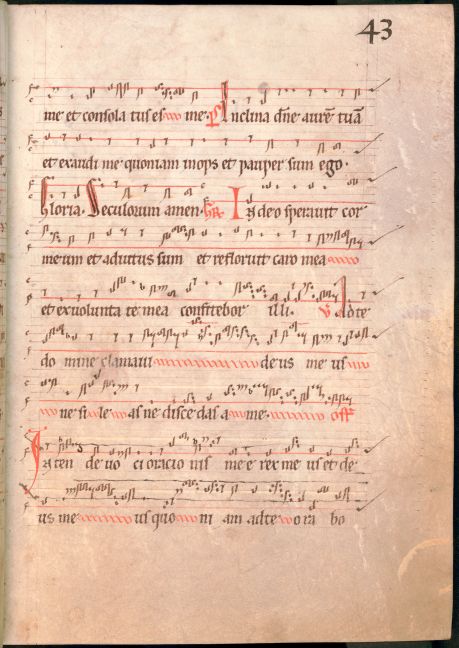 43
me et consola tus es me. Ps Inclina dne aurē tuā
et exaudi me quoniam inops et pauper sum ego.
Gloria. Seculorum amen. GR In deo sperauit cor
meum et adiutus sum et refloruit caro mea
et ex uolunta te mea confitebor illi. V Ad te
do mine clamaui deus me us
ne si le as ne disce das a me. off
Inten de uo ci oracio nis me e rex me us et de
us me us quo ni am ad te o ra bo